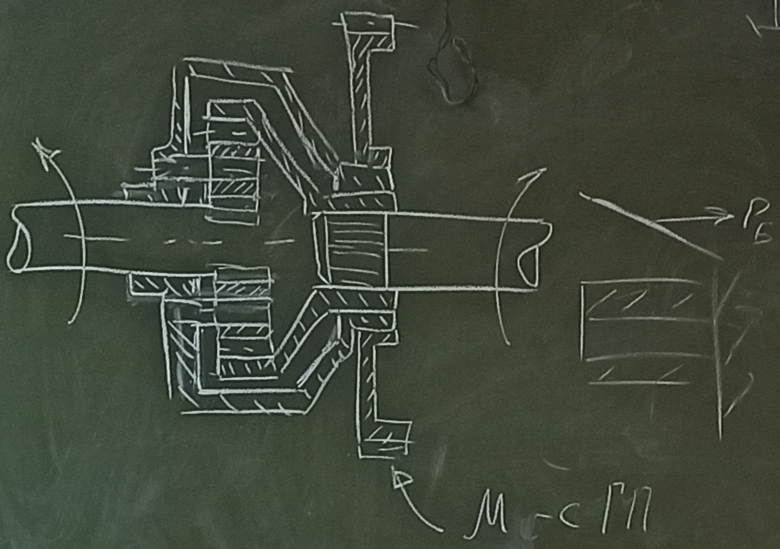 P_Б
М-с ГП